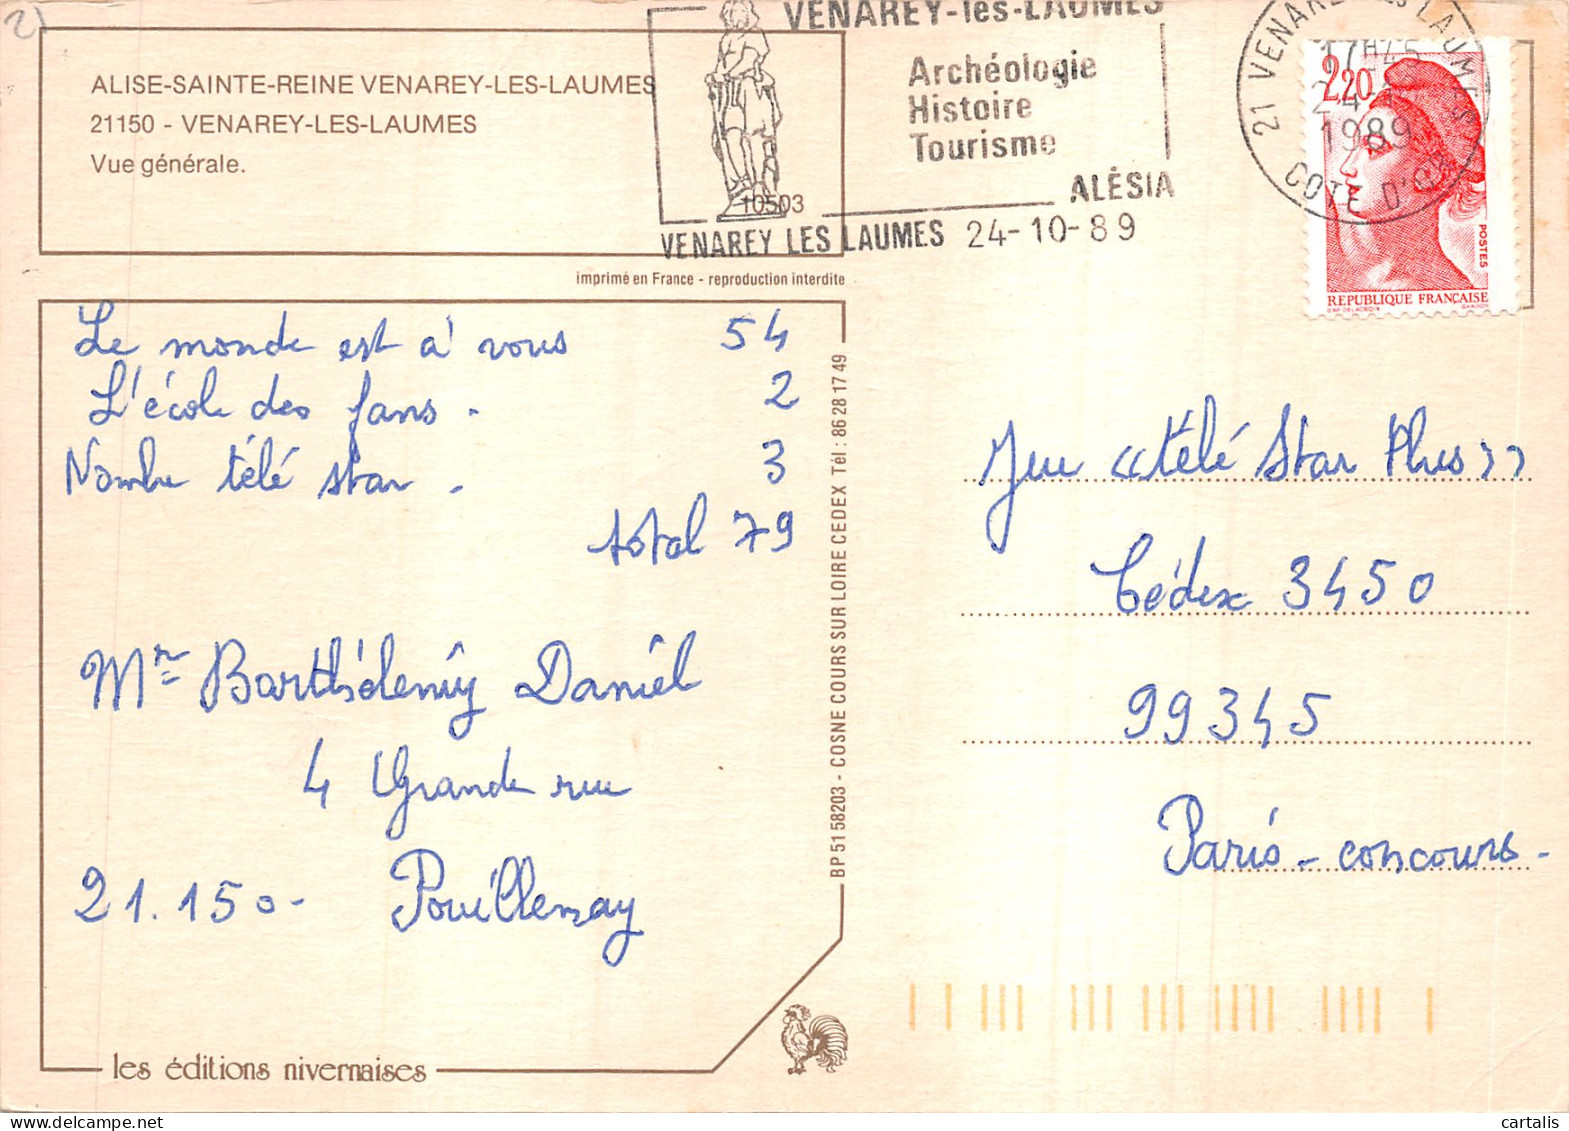 2)
ALISE-SAINTE-REINE VENAREY-LES-LAUMES
21150 - VENAREY-LES-LAUMES
Vue générale.
VENAREY-les-LAUMES
Archéologie
Histoire
Tourisme
ALÉSIA
10503
VENAREY LES LAUMES 24-10-89
21 VENAREY LES LAUMES
17H45
24-10
1989
COTE D'OR
2,20
POSTES
REPUBLIQUE FRANÇAISE
imprimé en France - reproduction interdite
Le monde est à vous 54
L'école des fans. 2
Nombre télé star. 3
total 79
Mr Barthélemy Daniel
4 Grande rue
21.150- Pouillenay
BP 51 58203 - COSNE COURS SUR LOIRE CEDEX Tél : 86 28 17 49
Jeu «télé Star Plus»
Cédex 3450
99345
Paris-concours-
les éditions nivernaises
cartalis
delcampe.net